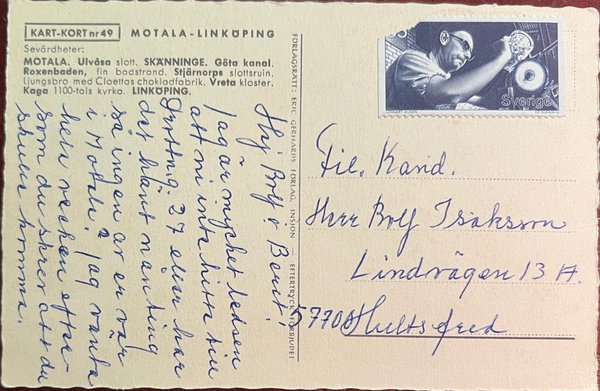 KART-KORT nr 49 MOTALA-LINKÖPING
Sevärdheter:
MOTALA. Ulvåsa slott. SKÄNNINGE. Göta kanal.
Roxenbaden, fin badstrand. Stjärnorps slottsruin.
Ljungsbro med Cloettas chokladfabrik. Vreta kloster.
Kaga 1100-tals kyrka. LINKÖPING.
FÖRLAGSRÄTT: ERIC GERHARDS FÖRLAG, INSJÖN EFTERTRYCK FÖRBJUDET
Sverige
Hej Rolf o Berit!
Jag är mycket ledsen
att ni inte hittade till
Drottn.g. 27 eller har
det hänt någonting
så ingen av er var
i Motala? Jag vänta
hela veckan efter-
som du skrev att du
skulle komma.
Fil. Kand.
Herr Rolf Isaksson
Lindvägen 13 A.
57700 Hultsfred